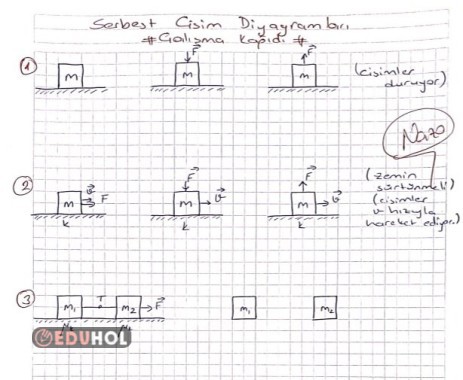 Serbest Cisim Diyagramları
#Çalışma Kağıdı#
① m
F m
F m (cisimler duruyor)
Nazo
② m v F k
F m v k
F m v k (zemin sürtünmeli)
(cisimler v hızıyla hareket ediyor)
③ m₁ T m₂ F m₁ m₂
EDUHOL